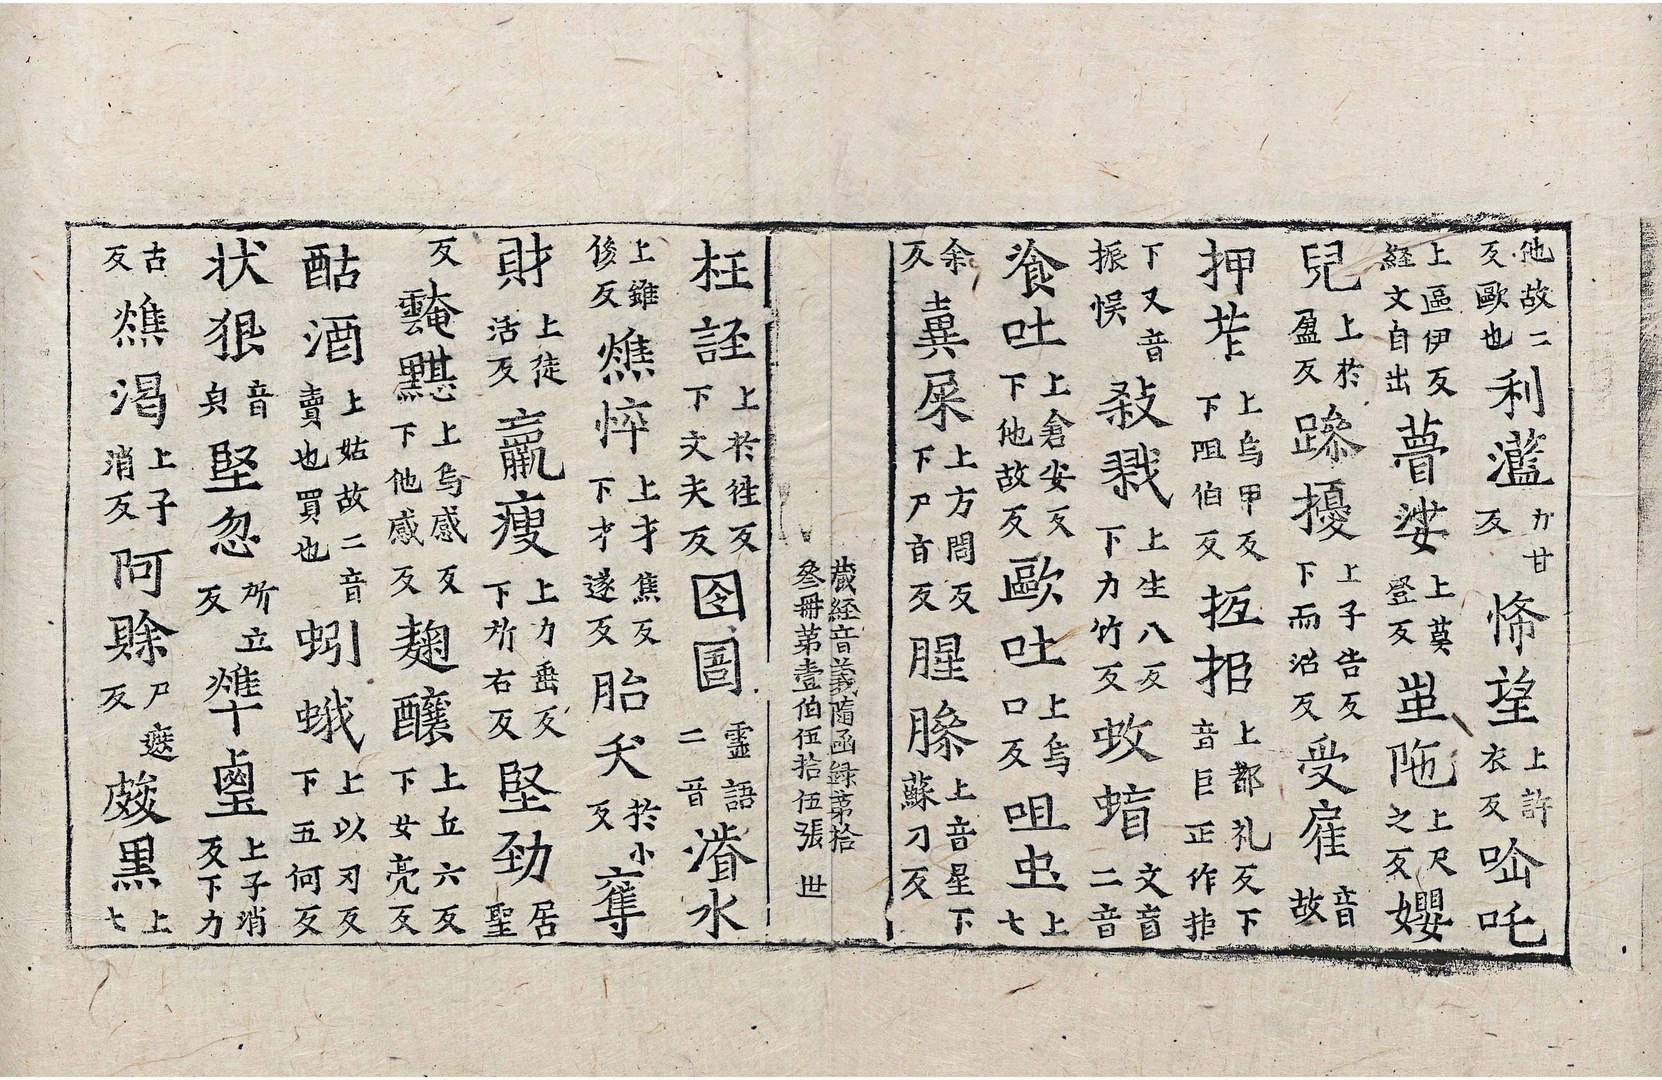 他故二反歐也利濫力甘反悕望上許衣反𠵇吒
上區伊反経文自出瞢娑上莫登反蚩陁上尺之反孆
兒上於盈反蹘擾上子告反下而沼反受雇音故
押苲上烏甲反下阻伯反拞抯上都礼反下音巨正作拒
下又音振悞煞戮上生八反下力竹反蚊蝱文盲二音
飡吐上倉安反下他故反歐吐上烏口反咀虫上七
余反糞屎上方問反下尸旨反腥臊上音星下蘇刁反
藏経音義隨函録第拾叄冊第壹伯伍拾伍張 世
枉誑上於往反下文夫反囹圄靈語二音濳水
上錐後反燋悴上才焦反下才遂反胎夭於小反奪
財上徒活反羸瘦上力垂反下所右反堅勁居聖
反黤黮上烏感反下他感反麹釀上丘六反下女亮反
酤酒上姑故二音賣也買也蚓蛾上以刃反下五何反
状狽音貝堅忽所立反燋鹵上子消反下力
古反燋渴上子消反阿賒尸遮反皴黒上七